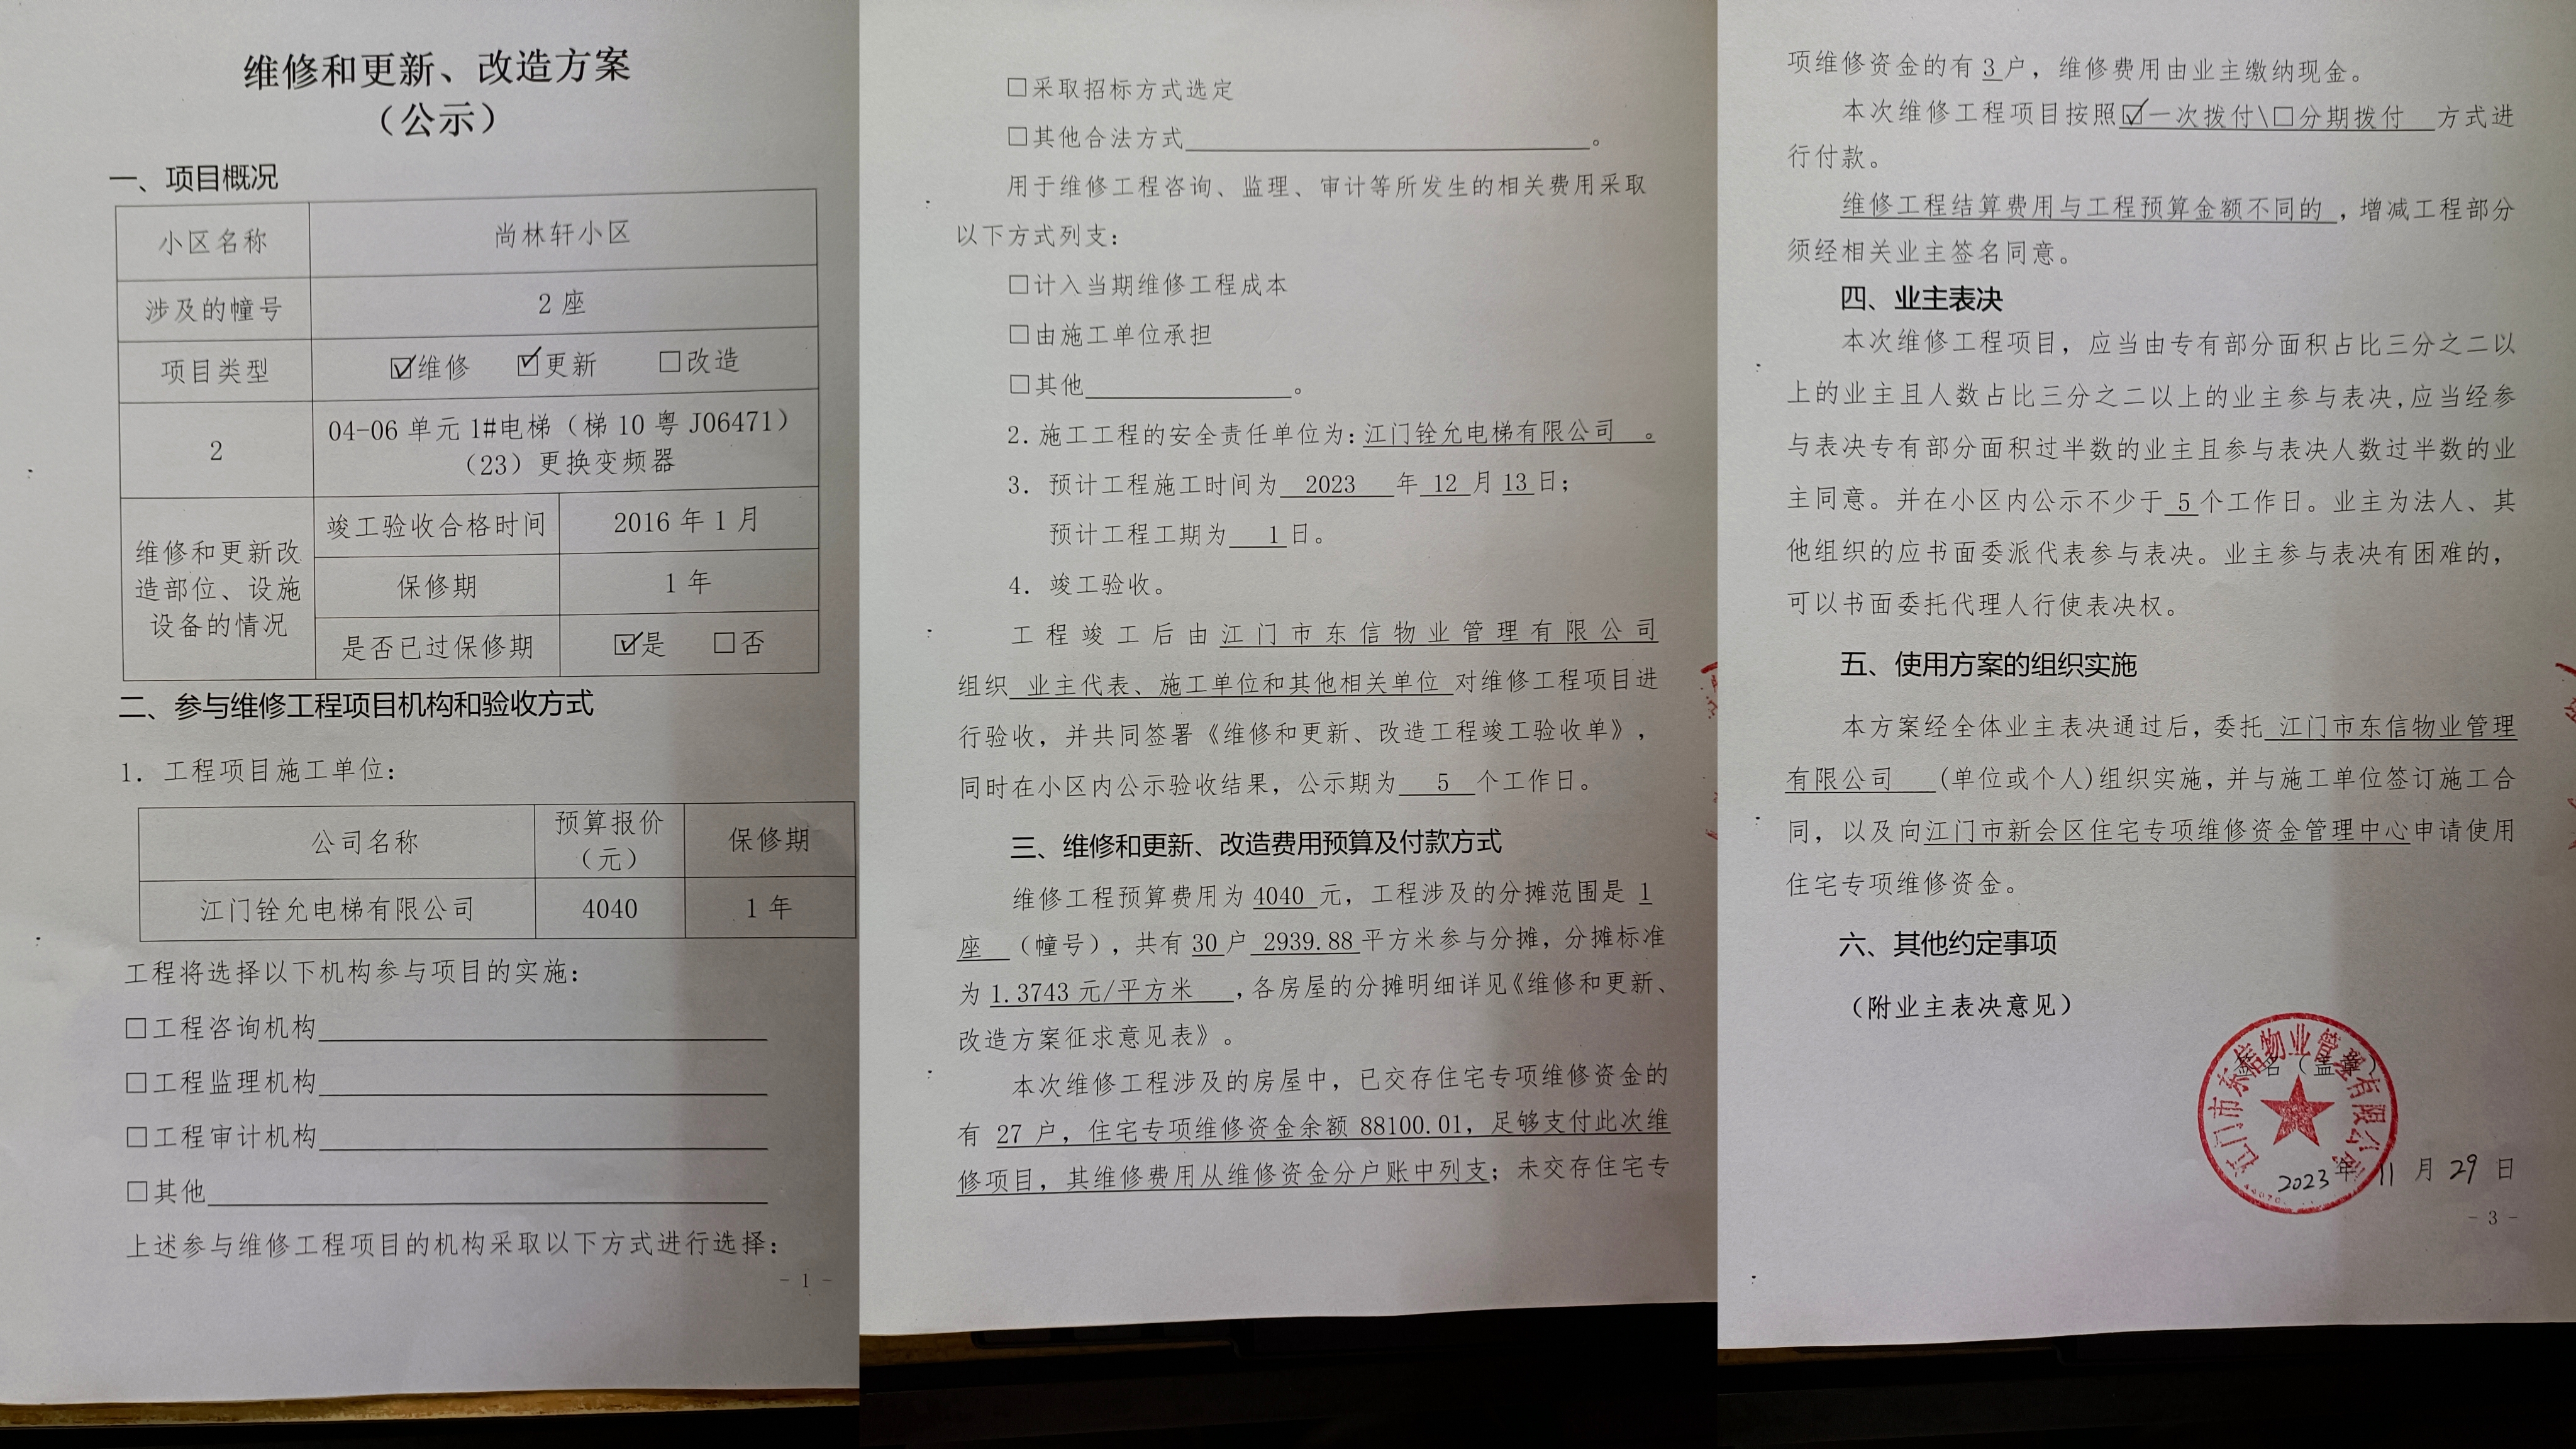 维修和更新、改造方案
（公示）
一、项目概况
小区名称 尚林轩小区
涉及的幢号 2 座
项目类型 ☑维修 ☑更新 □改造
2 04-06 单元 1#电梯（梯 10 粤 J06471）
（23）更换变频器
维修和更新改造部位、设施设备的情况
竣工验收合格时间 2016 年 1 月
保修期 1 年
是否已过保修期 ☑是 □否
二、参与维修工程项目机构和验收方式
1. 工程项目施工单位：
公司名称 预算报价（元） 保修期
江门铨允电梯有限公司 4040 1 年
工程将选择以下机构参与项目的实施：
□工程咨询机构
□工程监理机构
□工程审计机构
□其他
上述参与维修工程项目的机构采取以下方式进行选择：
- 1 -
□采取招标方式选定
□其他合法方式 。
用于维修工程咨询、监理、审计等所发生的相关费用采取
以下方式列支：
□计入当期维修工程成本
□由施工单位承担
□其他 。
2. 施工工程的安全责任单位为：江门铨允电梯有限公司 。
3. 预计工程施工时间为 2023 年 12 月 13 日；
预计工程工期为 1 日。
4. 竣工验收。
工程竣工后由江门市东信物业管理有限公司
组织 业主代表、施工单位和其他相关单位 对维修工程项目进
行验收，并共同签署《维修和更新、改造工程竣工验收单》，
同时在小区内公示验收结果，公示期为 5 个工作日。
三、维修和更新、改造费用预算及付款方式
维修工程预算费用为 4040 元，工程涉及的分摊范围是 1
座 （幢号），共有 30 户 2939.88 平方米参与分摊，分摊标准
为 1.3743 元/平方米 ，各房屋的分摊明细详见《维修和更新、
改造方案征求意见表》。
本次维修工程涉及的房屋中，已交存住宅专项维修资金的
有 27 户，住宅专项维修资金余额 88100.01，足够支付此次维
修项目，其维修费用从维修资金分户账中列支；未交存住宅专
项维修资金的有 3 户，维修费用由业主缴纳现金。
本次维修工程项目按照☑一次拨付\□分期拨付 方式进
行付款。
维修工程结算费用与工程预算金额不同的 ，增减工程部分
须经相关业主签名同意。
四、业主表决
本次维修工程项目，应当由专有部分面积占比三分之二以
上的业主且人数占比三分之二以上的业主参与表决,应当经参
与表决专有部分面积过半数的业主且参与表决人数过半数的业
主同意。并在小区内公示不少于 5 个工作日。业主为法人、其
他组织的应书面委派代表参与表决。业主参与表决有困难的，
可以书面委托代理人行使表决权。
五、使用方案的组织实施
本方案经全体业主表决通过后，委托 江门市东信物业管理
有限公司 (单位或个人)组织实施，并与施工单位签订施工合
同，以及向江门市新会区住宅专项维修资金管理中心申请使用
住宅专项维修资金。
六、其他约定事项
（附业主表决意见）
签名（盖章）
江门市东信物业管理有限公司
2023 年 11 月 29 日
- 3 -